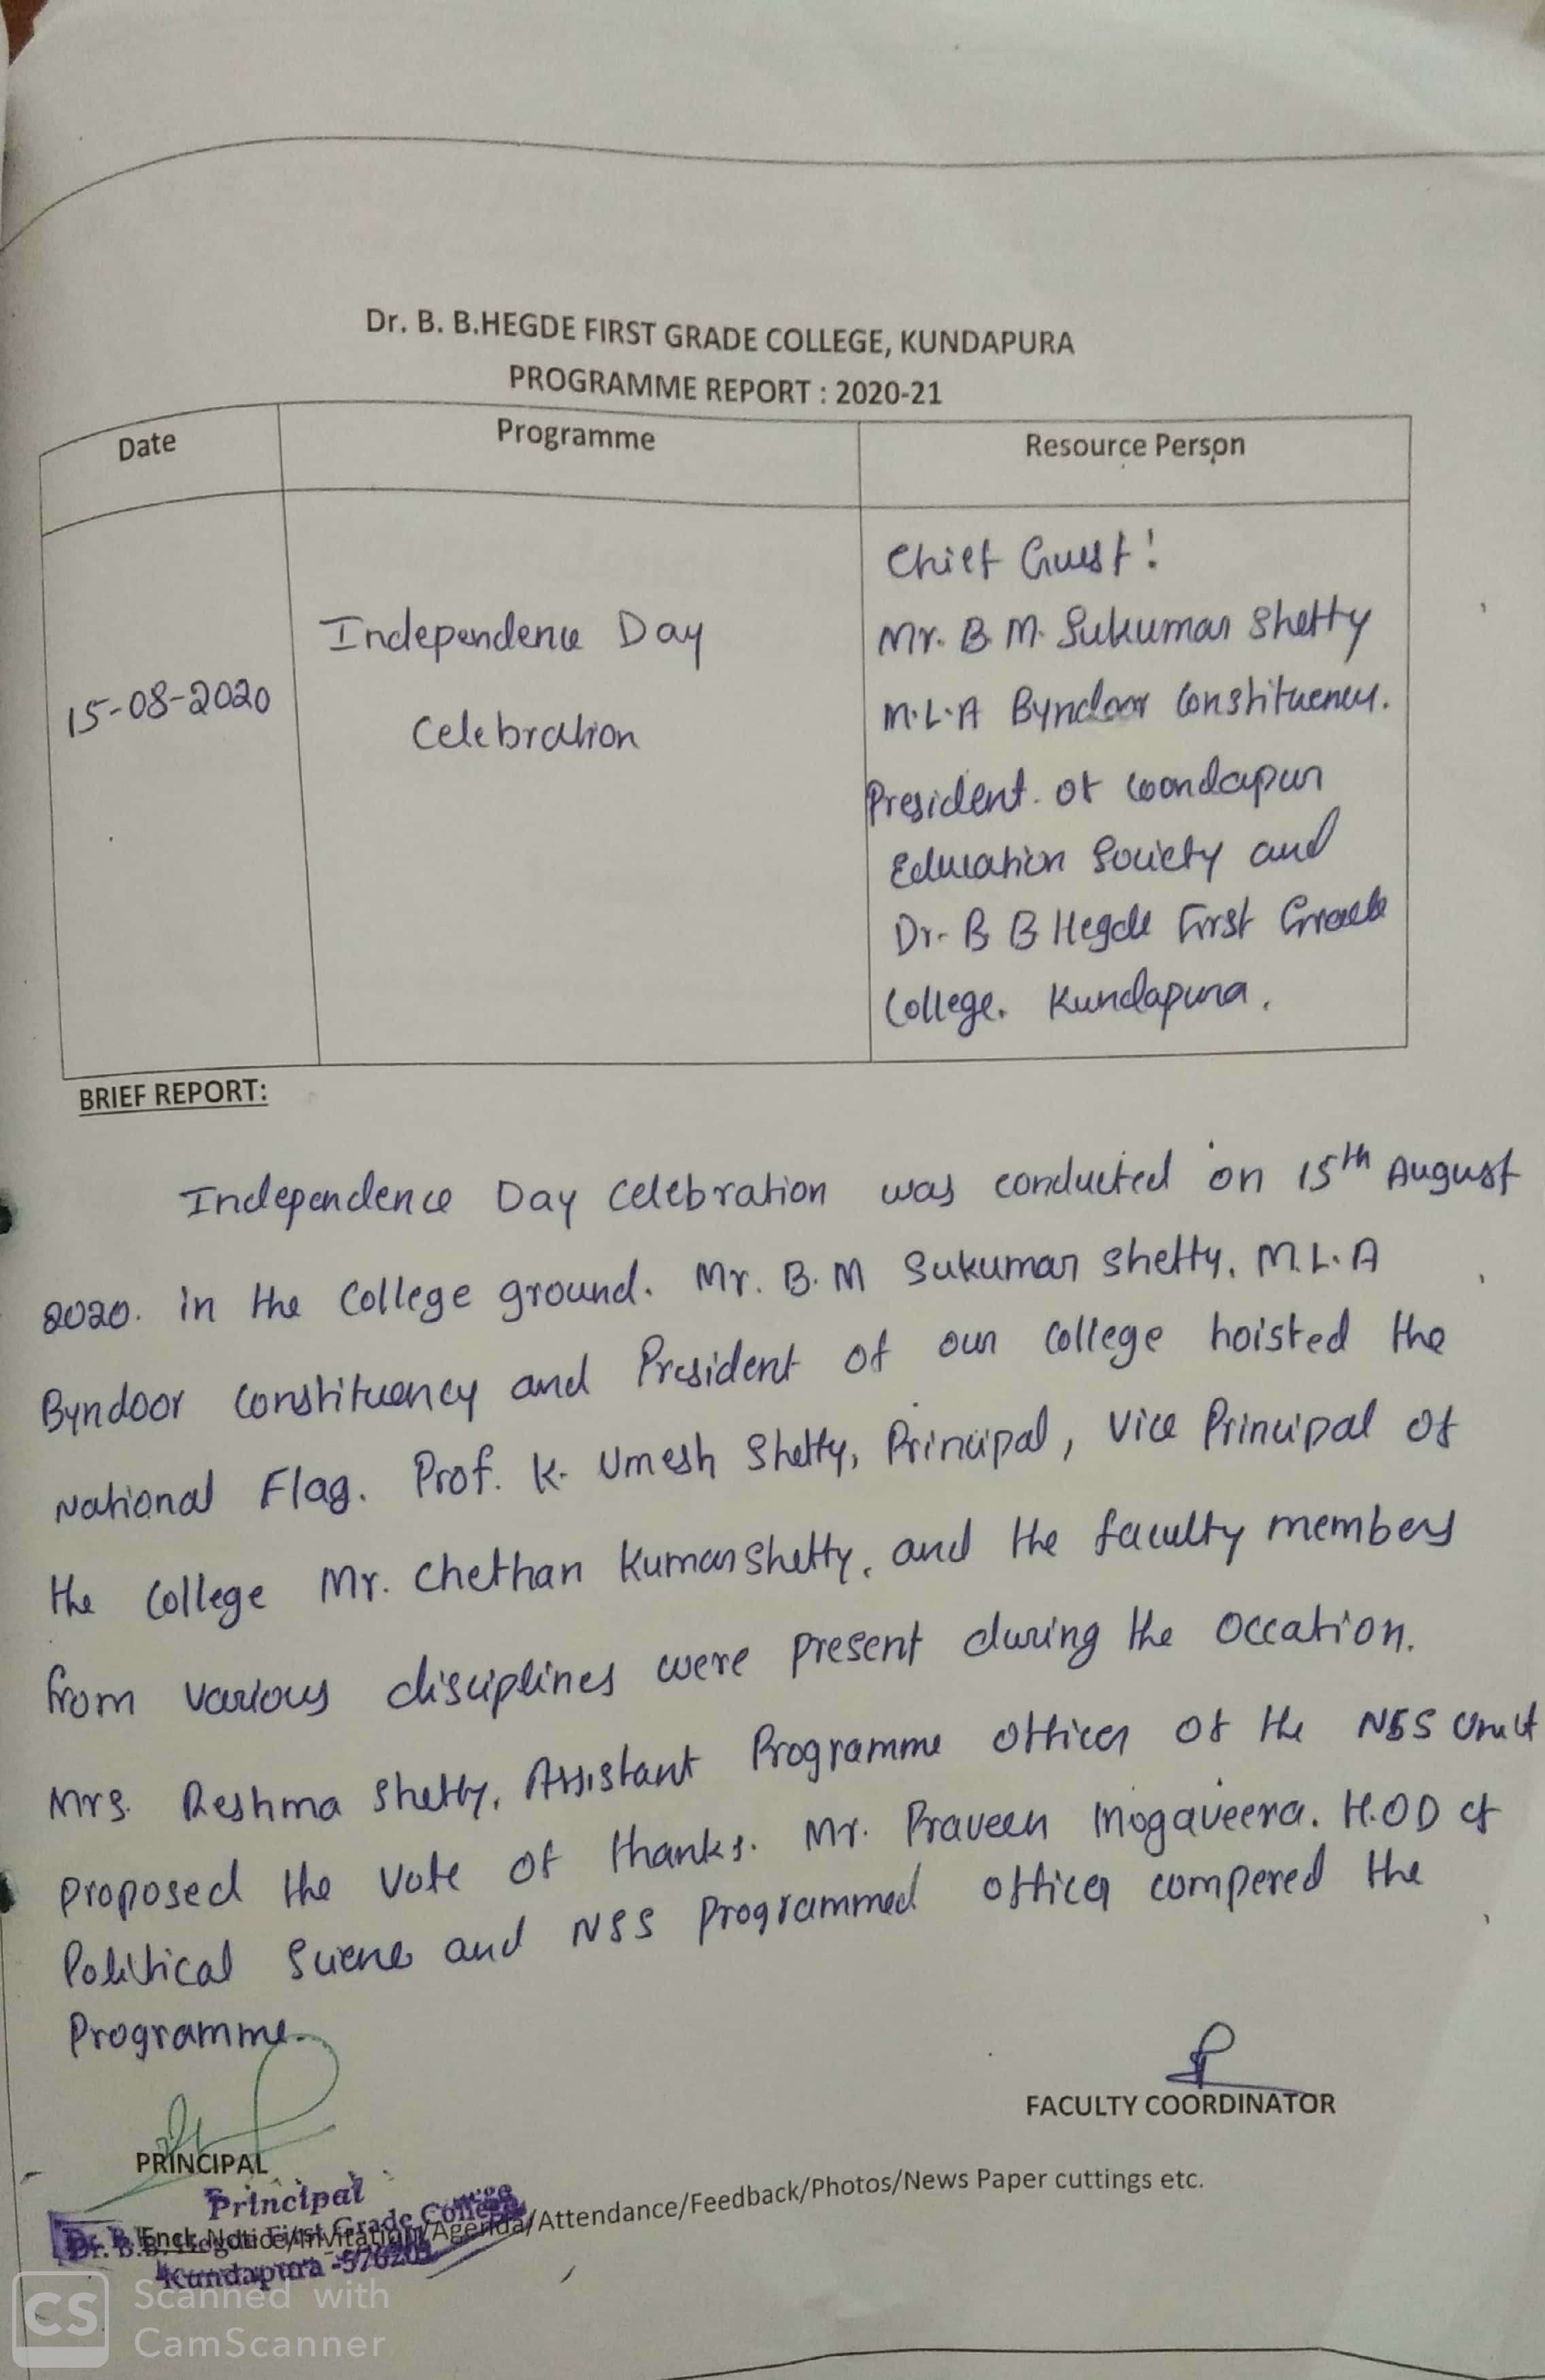 Dr. B. B.HEGDE FIRST GRADE COLLEGE, KUNDAPURA
PROGRAMME REPORT : 2020-21
Date Programme Resource Person
15-08-2020
Independence Day
Celebration
Chief Guest:
Mr. B. M. Sukumar Shetty
M.L.A Byndoor Constituency.
President. of Coondapur
Education Society and
Dr. B B Hegde First Grade
College. Kundapura.
BRIEF REPORT:
Independence Day Celebration was conducted on 15th August
2020. in the College ground. Mr. B. M Sukumar Shetty, M.L.A
Byndoor Constituency and President of our College hoisted the
National Flag. Prof. K. Umesh Shetty, Principal, Vice Principal of
the College Mr. Chethan Kumar Shetty, and the faculty members
from various disciplines were present during the occation.
Mrs. Reshma Shetty, Assistant Programme officer of the NSS Unit
proposed the vote of thanks. Mr. Praveen Mogaveera. H.OD of
Political Science and NSS Programmed officer compered the
Programme.
FACULTY COORDINATOR
PRINCIPAL
Principal
Dr. B.B. Hegde First Grade College
Encl: Notice/Invitation/Agenda/Attendance/Feedback/Photos/News Paper cuttings etc.
Kundapura -576201
CS Scanned with
CamScanner